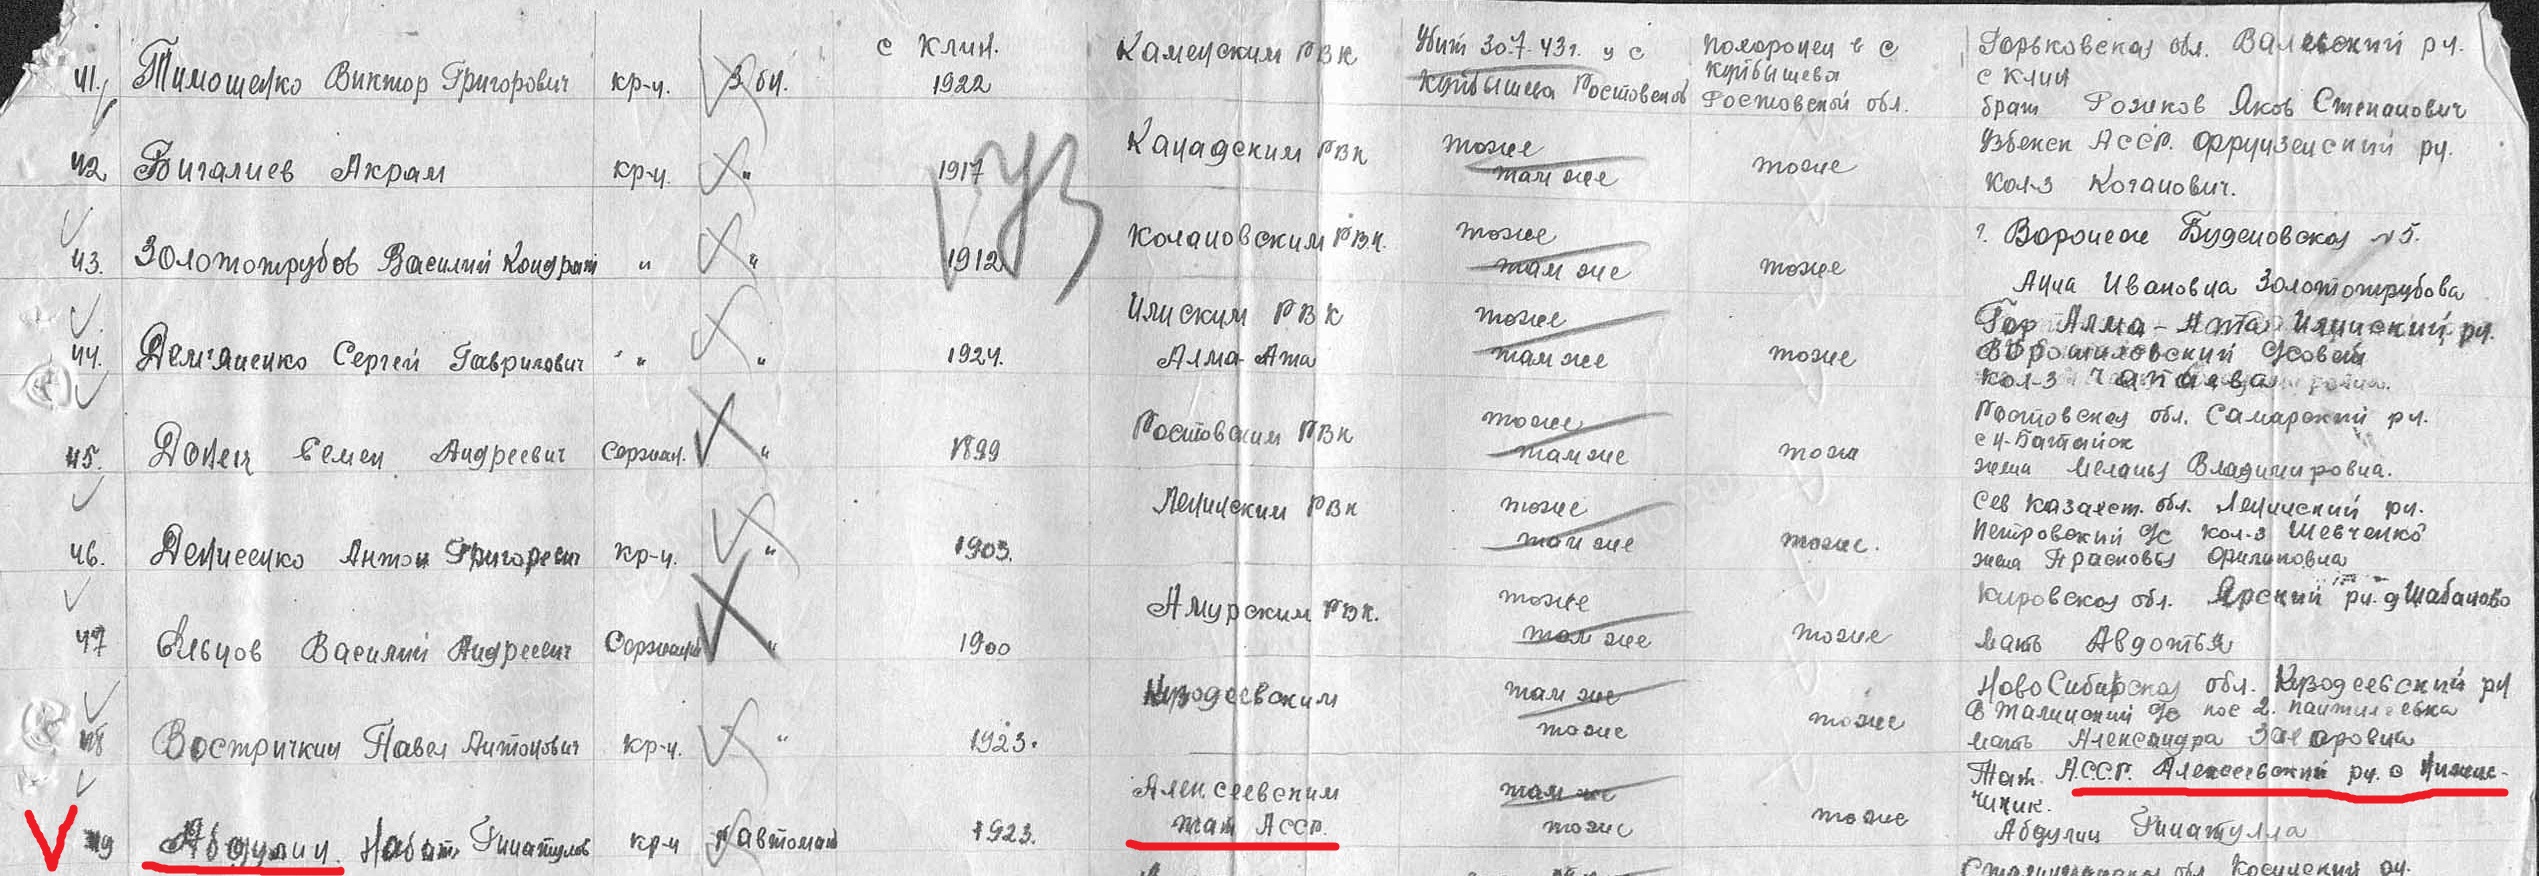 с Клин.
41. Тимошенко Виктор Григорович кр-ц. 3 бц. 1922 Каменским РВК Убит 30.7.43г. у с Куйбышева Ростовской Похоронен в с Куйбышева Ростовской обл. Горьковская обл. Валевский рц.
с Клин
брат Розиков Яков Степанович
42 Бигалиев Акрам кр-ц. " 1917 Канадским РВК тоже там же тоже Узбекск АССР. Фрунзенский рц.
Кол-з Коганович.
43. Золототрубов Василий Кондрат " " 1912 Колановским РВК. тоже там же тоже г. Воронеж Буденовская №5.
Анна Ивановна Золототрубова
44. Демяненко Сергей Гаврилович " " 1924. Илиским РВК Алма-Ата тоже там же тоже Гор Алма-Ата Илийский рц.
Ворошиловский с/совет
Кол-з Чапаева
45. Донец Семен Андреевич Сержан. " 1899 Ростовским РВК тоже там же тоже Ростовская обл. Самарский рц.
с Н-Батайск
жена Меланья Владимировна.
46. Денисенко Антон Григоревич кр-ц. " 1903. Ленинским РВК тоже там же тоже. Сев Казахст. обл. Ленинский рц.
Петровский с/с кол-з Шевченко
жена Прасковья Филиповна
47 Ельцов Василий Андреевич Сержант " 1900 Амурским РВК. тоже там же тоже Кировская обл. Ярский рц. д Шабаново
мать Авдотья
48 Востричкин Павел Антонович кр-ц. " 1923. Кузодеевским там же тоже тоже НовоСибирская обл. Кузодеевский рц
мать Александра Захаровна
49 Абдулин. Набат. Гинатулов кр-ц автомат 1923. Алексеевским тат АССР. там же тоже тоже Тат. А.С.С.Р. Алексеевский рц. с Нижне-
чиник.
Абдулин Гинатулла
Сталинградская обл. рц.
УЗ